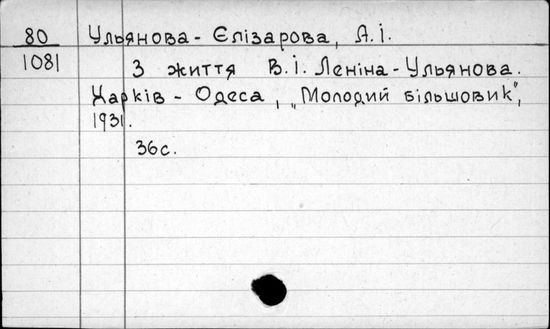 80 Ульянова - Єлізарова, А.І.
1081 З життя В.І. Леніна - Ульянова.
Харків - Одеса, „Молодий більшовик",
1931.
36с.